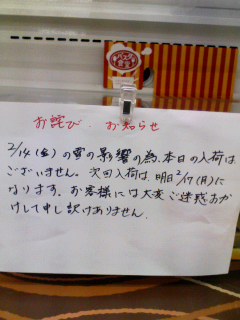 お詫び、お知らせ
2/14(金)の雪の影響の為、本日の入荷は
ございません。次回入荷は、明日2/17(月)に
なります。お客様には大変ご迷惑おか
けして申し訳ありません。